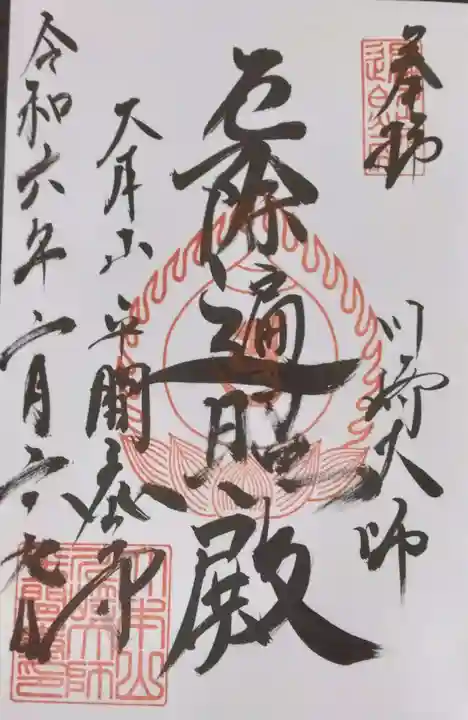 奉拝
川崎大師
厄除遍照殿
大本山 平間寺
令和六年二月